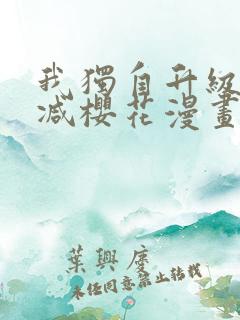 我獨自升級
减櫻花漫畫
葉興慶
未经同意禁止转载